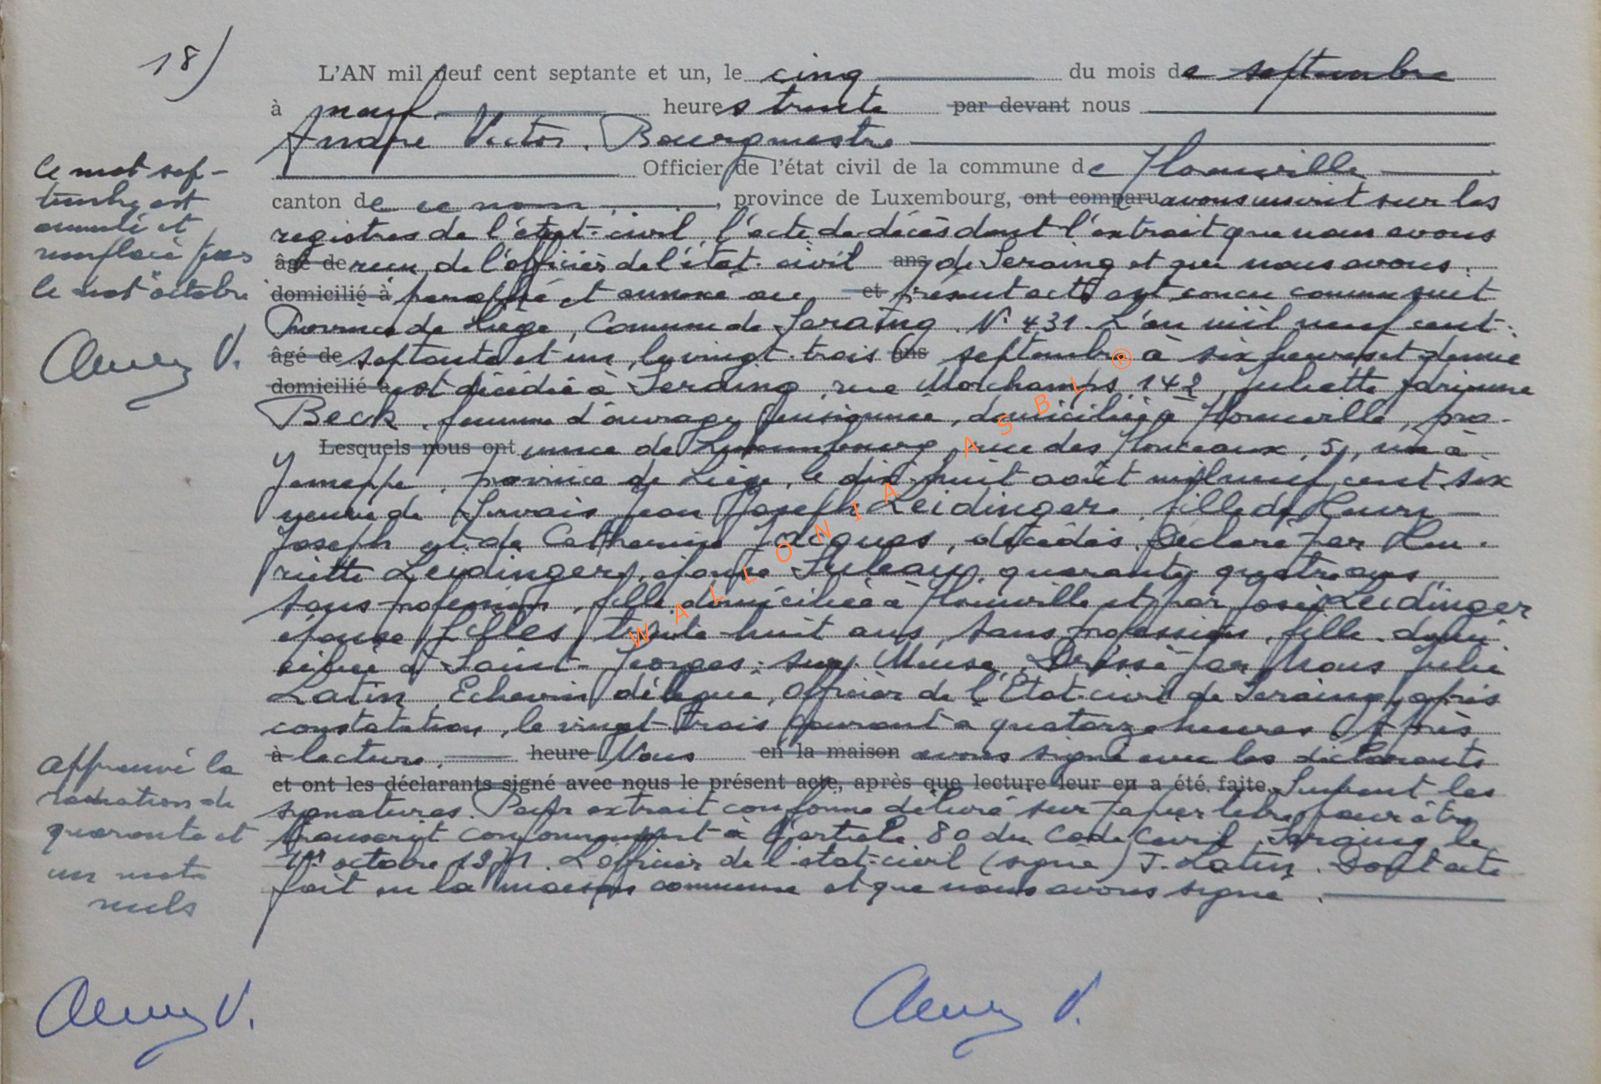 18)
L'AN mil neuf cent septante et un, le cinq du mois de septembre
à neuf heures trente par devant nous
André Victor, Bourgmestre
Officier de l'état civil de la commune de Flamierge
canton de ce nom, province de Luxembourg, ont comparu avons inscrit sur les
registres de l'état-civil, l'acte de décès dont l'extrait que nous avons
âgé de reçu de l'officier de l'état-civil ans de Seraing et que nous avons
domicilié à paraphé et annexé au et présent acte est conçu comme suit
Province de Liège, Commune de Seraing. N° 431. L'an mil neuf cent
âgé de septante et un, le vingt-trois ans septembre à six heures et demie
domicilié à est décédée à Seraing, rue Morchamps 142, Juliette
Beck, femme d'ouvrage pensionnée, domiciliée à pro-
Lesquels nous ont vince de Luxembourg, rue des 51, née à
Jemeppe, province de Liège, le dix-huit août mil neuf cent six
veuve de Servais Jean Joseph Leidinger, fille de Henri
Joseph et de Catherine Jacques, décédés. Déclaré par Hen-
riette Leidinger, épouse quarante quatre ans
sans profession, fille domiciliée à et par Josée Leidinger
épouse trente-huit ans, sans profession, fille domi-
ciliée à Saint-Georges-sur-Meuse. Dressé par Nous Julien
Latin, Echevin délégué, Officier de l'Etat-civil de Seraing, après
constatation, le vingt-trois courant à quatorze heures. Après
à lecture, heure Nous en la maison avons signé avec les déclarants
et ont les déclarants signé avec nous le présent acte, après que lecture leur en a été faite. Suivent les
signatures. Pour extrait conforme délivré sur papier libre pour être
transcrit conformément à l'article 80 du Code Civil. Seraing le
1er octobre 1971. L'officier de l'état-civil (signé) J. Latin. Dont acte
fait en la maison commune et que nous avons signé.
Ce mot sep-
tembre est
annulé et
remplacé par
le mot "octobre
V.
approuvé la
radiation de
quarante et
un mots
nuls
V.
V.
WALLONIA ASBL ®